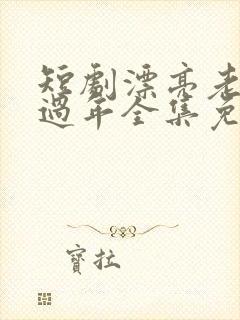 短劇漂亮老
過年全集免
寶拉